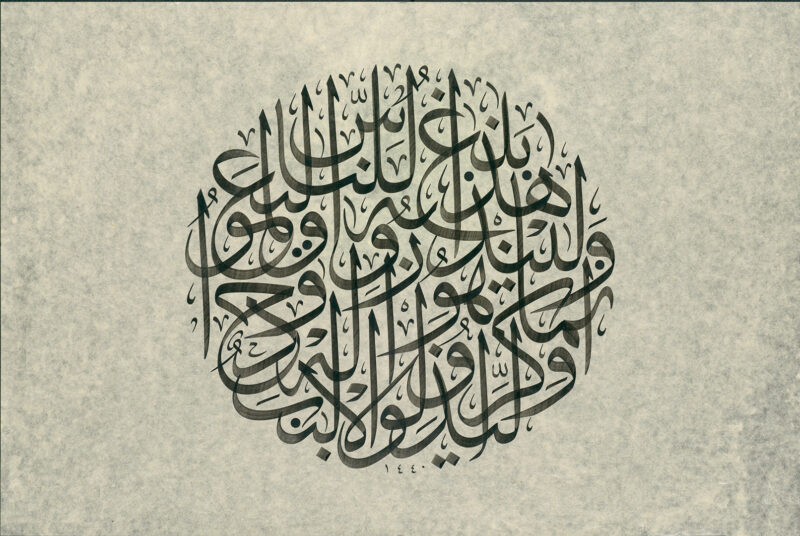 هَذَا بَلَاغٌ لِلنَّاسِ وَلِيُنْذَرُوا بِهِ وَلِيَعْلَمُوا أَنَّمَا هُوَ إِلَهٌ وَاحِدٌ وَلِيَذَّكَّرَ أُولُو الْأَلْبَابِ
١٤٤٠